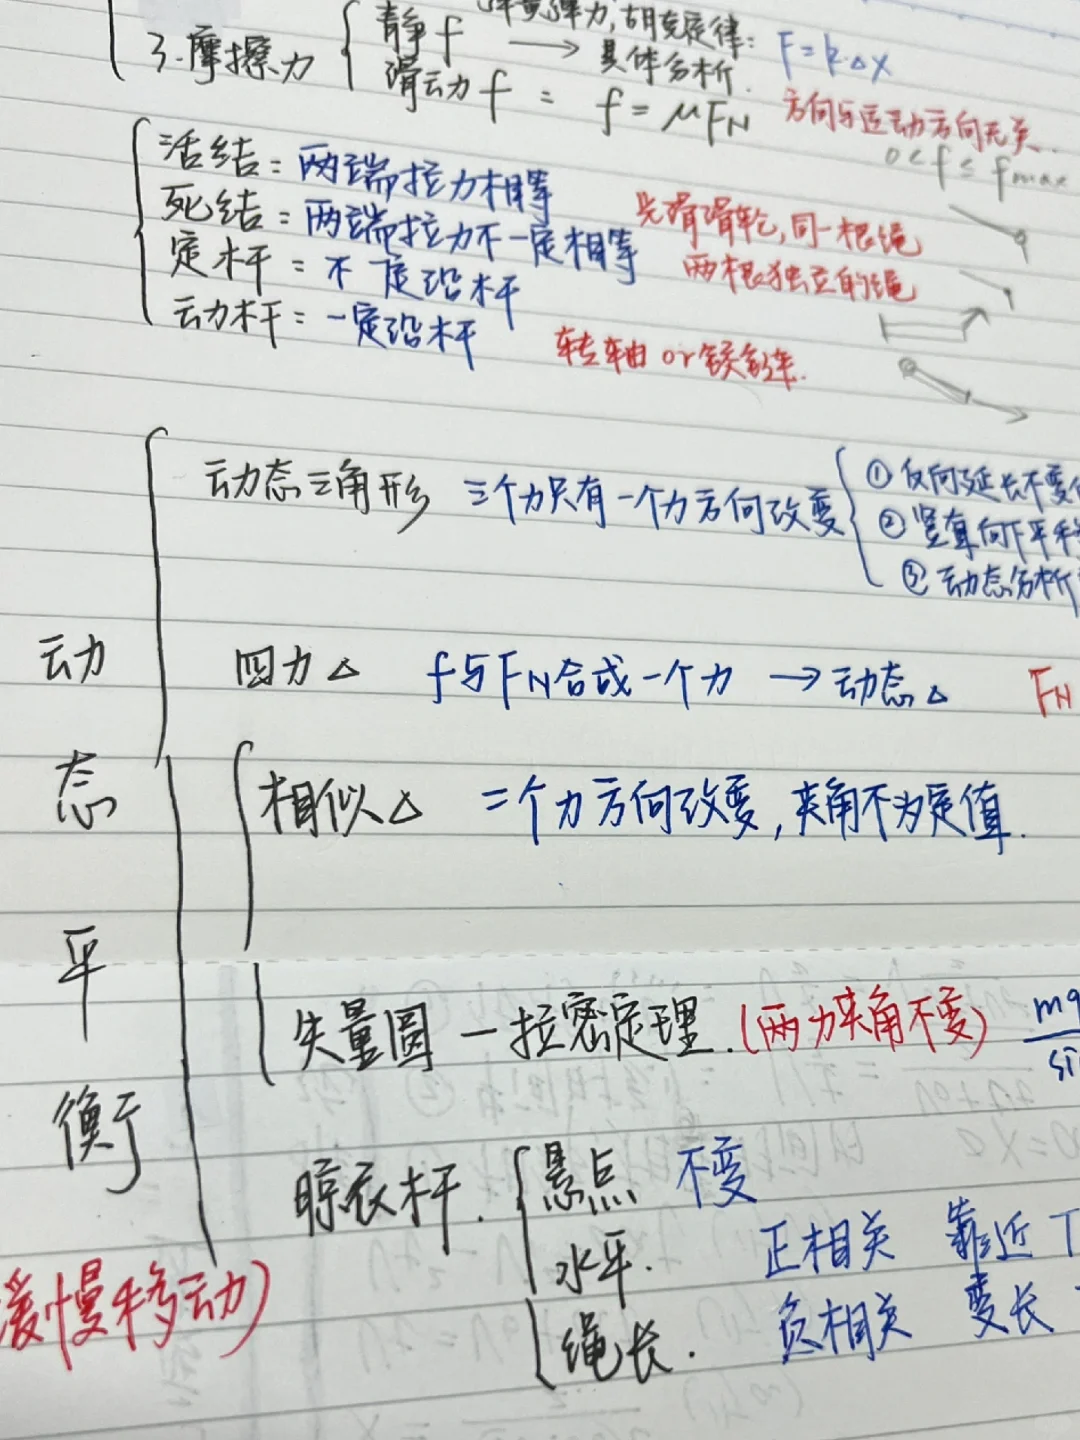 弹力,胡克定律: F=k·Δx
3.摩擦力 静f → 具体分析.
滑动f = f=μFN 方向与运动方向无关.
0<f≤fmax
活结:两端拉力相等 光滑滑轮,同一根绳
死结:两端拉力不一定相等 两根独立的绳
定杆=不一定沿杆
动杆=一定沿杆 转轴 or 铰链.
动态三角形 三个力只有一个力方向改变 ①反向延长不变
②竖直向下平移
③动态分析
四力△ f与FN合成一个力 →动态△ FN
相似△ 二个力方向改变,夹角不为定值.
矢量圆 — 拉密定理.(两力夹角不变) mg
si
动态平衡
(缓慢移动)
晾衣杆. 悬点 不变
水平. 正相关 靠近 T
绳长. 负相关 变长